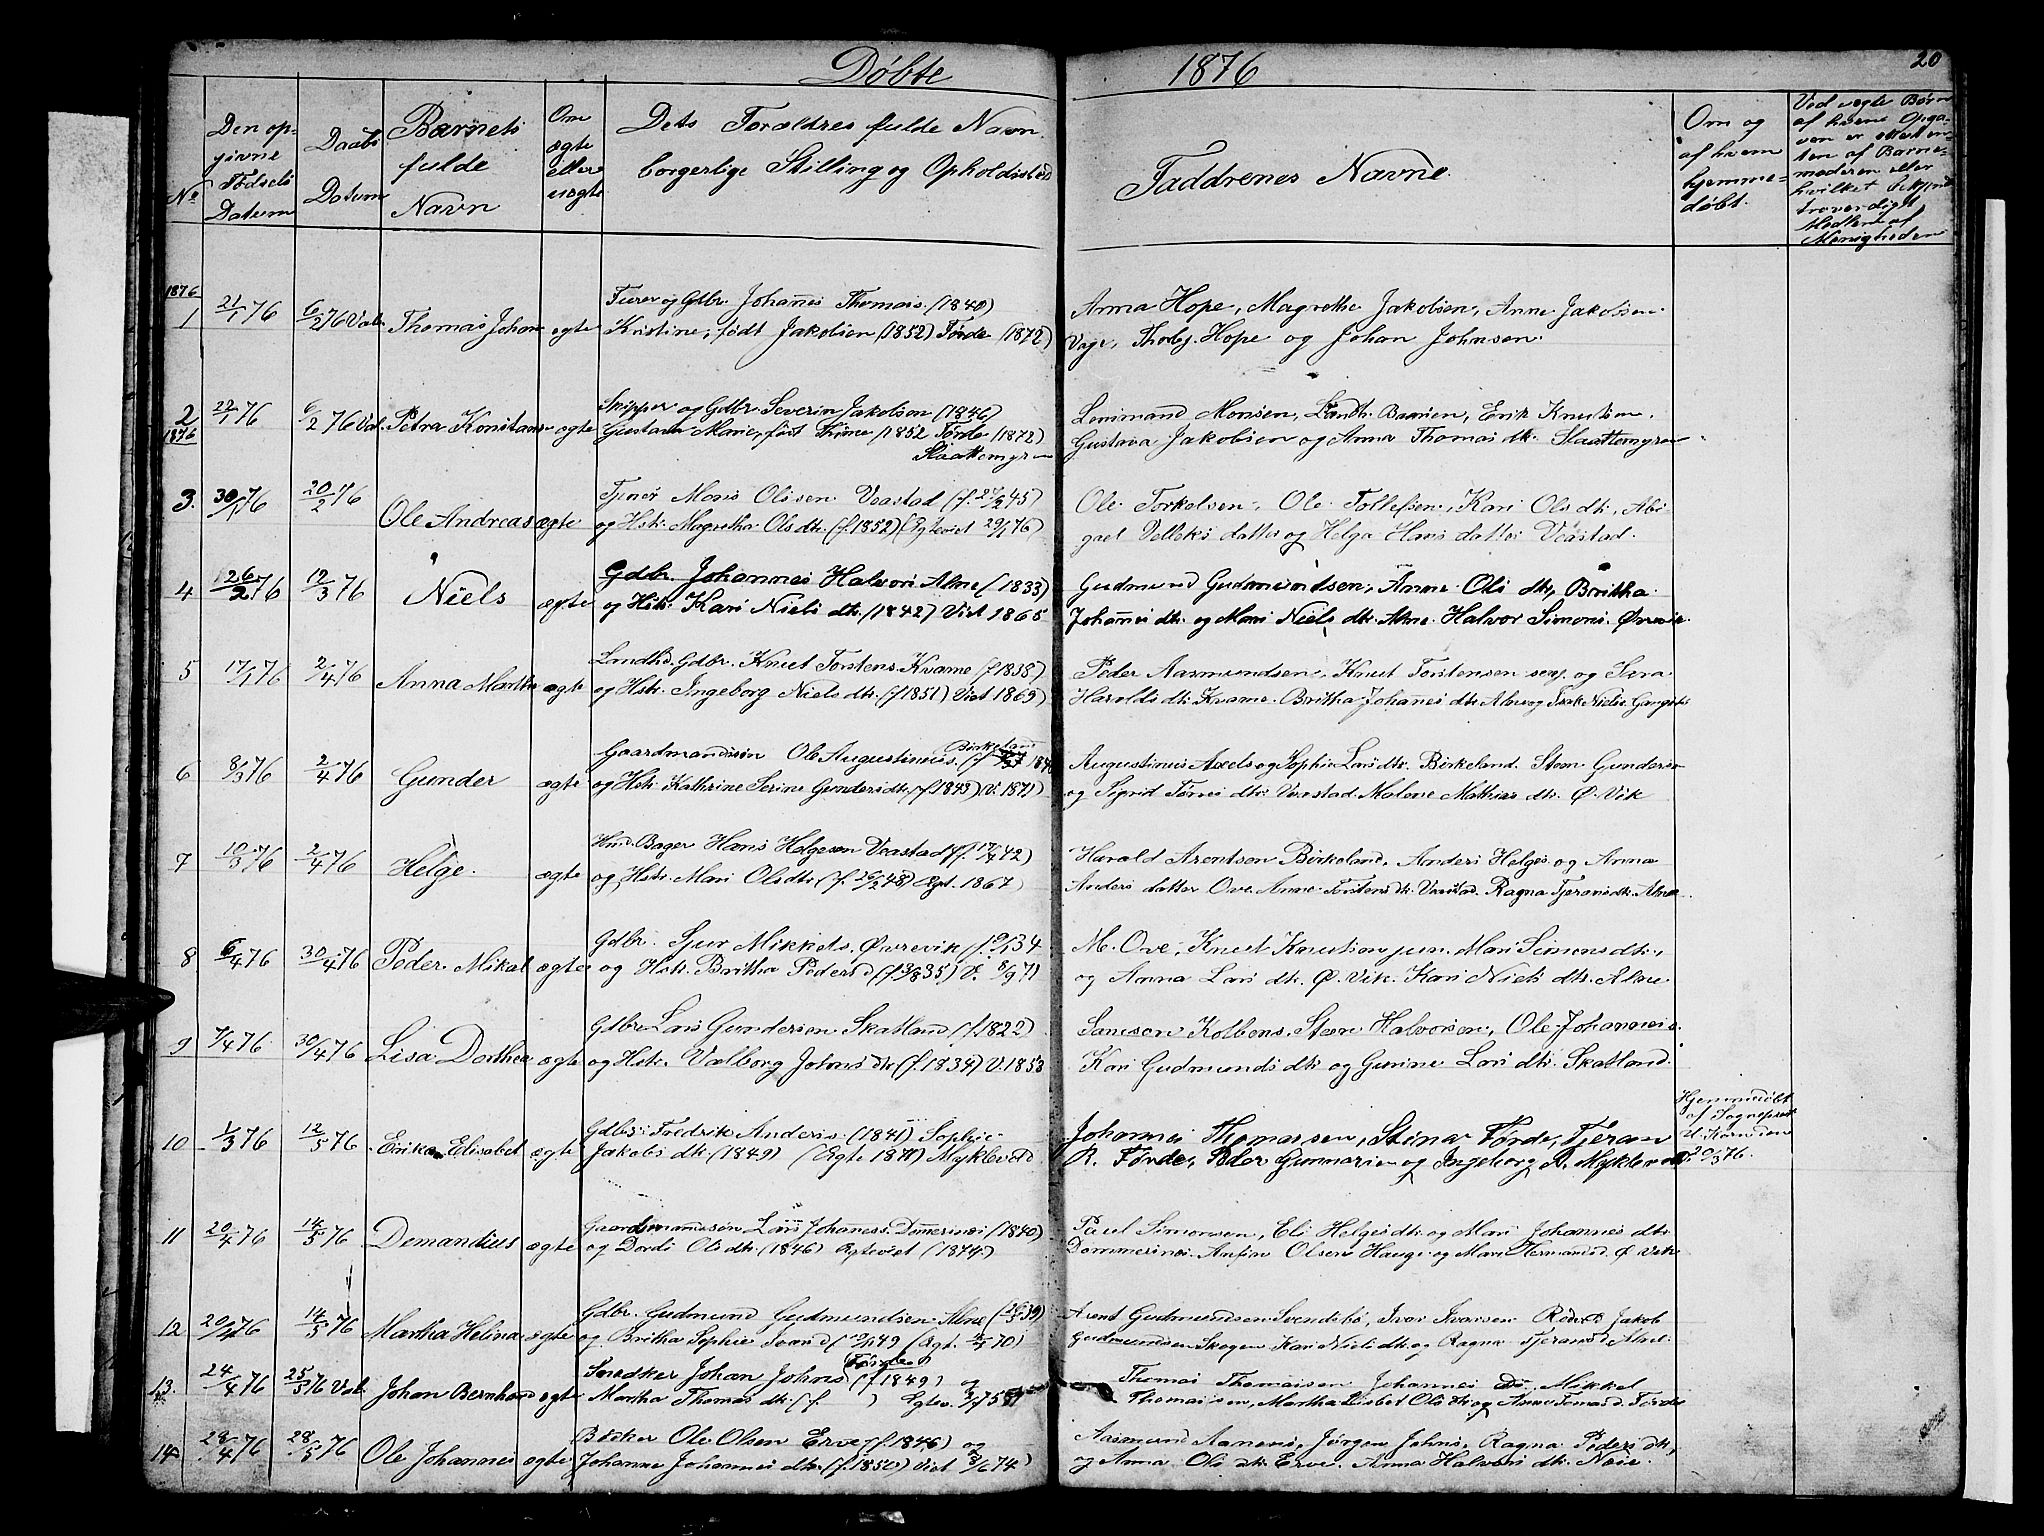 Døbte 1876
20
No
Den op-
givne
Fødsels
Datum
Daabs
Datum
Barnets
fulde
Navn
Om
ægte
eller
uægte
Dets Forældres fulde Navn
borgerlige Stilling og Opholdssted
Faddrenes Navne.
Om og
af hvem
hjemme-
døbt.
Ved uægte Børn
af hvem Opga-
ven er
ten af Barne-
moderen eller
hvilket
troverdigt
Medlem af
Menigheden
1876
1 21/1 76 6/2 76 Thomas Johan ægte
og Gdbr. Johanes Thomas. (1840)
Kristine, født Jakobsen (1852) Førde (1872)
Anna Hope, Magrethe Jakobsen, Anne Jakobsen
Vage, Thorbj. Hope og Johan Johnsen.
2 22/1 76 6/2 76 Petra Konstanse ægte
1876
Skipper og Gdbr Severin Jakobsen (1846)
Gustava Marie, født (1852 Førde (1872)
Slaattemyren
Monsen, Landh. Erik Knutsen,
Gustava Jakobsen og Anna Thomas dtr. Slaattemyren
3. 30/1 76 20/2 76 Ole Andreas ægte
Tjener Mons Olsen Veastad (f. 27/2 45)
og Hstr. Magretha Ols dtr. (f. 1852) (Egteviet 29/1 76)
Ole Torkelsen, Ole Tollefsen, Kari Ols dtr, Abi-
gael Velleks datter og Helga Hans datter Veastad.
4 26/2 76 12/3 76 Niels ægte
Gdbr. Johannes Halvors Alne (1833)
og Hstr. Kari Niels dtr. (1842) Viet 1865
Gudmund Gudmundsen, Anne Ols dtr, Britha
Johanes dtr. og Mari Niels dtr. Alne. Halvor Simons. Øvrevik.
5 17/1 76 2/4 76 Anna Martha ægte
Landhd. Gdbr. Knut Torstens. Kvame (f 1838)
og Hstr. Ingeborg Niels dtr. (f 1851) Viet 1869)
Peder Aasmundsen, Knut Torstensen og Sera
Harolds dtr Kvame. Britha Johanes dtr Alne og Isak Niels.
6 8/3 76 2/4 76 Gunder ægte
Gaardmandssøn Ole Augustinus. Birkeland
og Hstr. Kathrine Serine Gunders dtr. (f. 1843) (V. 1871)
Augustinus Axels og Sophie Lars dtr. Birkeland. Sten Gunders
og Sigrid Tørres dtr. Veastad. Malene Mathias dtr. Ø. Vik
7 10/3 76 2/4 76 Helge. ægte
Hmd. Bager Hans Helgesen Veastad (f. 17/7 42)
og Hstr. Mari Ols dtr. (f. 26/2 48) Egt. 1867
Harald Arentsen Birkeland, Anders Helges. og Anna
Anders datter Ove. Anne Torstens dtr. Veastad. Ragna Tjerans dtr. Alne.
8 6/4 76 30/4 76 Peder Mikal ægte
Gdbr. Sjur Mikkels. Øvrevik
og Hstr. Britha Peders d V. 8/9 71
M. Ove, Knut Knutsen jun. Mari Simons dtr,
og Anna Lars dtr. Ø. Vik. Kari Niels dtr. Alne.
9 7/4 76 30/4 76 Lisa Dorthea ægte
Gdbr Lars Gundersen Skatland (f. 1822)
og Hstr. Valborg Johns dtr (f. 1834) V. 1853
Samson Kolbens. Halvorsen, Ole Johannes
Kari Gudmunds dtr og Gurine Lars dtr. Skatland.
10 1/3 76 12/5 76 Erika Elisabet ægte
Gdbr. Fredrik Anders. (1841) Sophie
Jakobs dtr. (1849) (Egte 1871) Myklevold
Johannes Thomassen, Stina Førde, Tjeran
R. Førde, Peder Gunnarsen og Ingeborg P. Myklevold
Hjemmedøbt
af Sogneprest
den
20/3 76.
11 20/4 76 14/5 76 Demandius ægte
Gaardsmandssøn Lars Johaness. Dommersnes (1840)
og Dordi Ols dtr. (1846) Egteviet (1874)
Paul Simonsen, Eli Helges dtr. og Mari Johannes dtr.
Dommersnes. Anfin Olsen Hauge og Mari Hermansd. Ø. Vik
12 20/4 76 14/5 76 Martha Helina ægte
Gdbr. Gudmund Gudmundsen Alne
og Britha Sophie Ivars d
Arent Gudmundsen Svendsbø, Ivar Ivarsen Jakob
Gudmundsen Skogen Kari Niels dtr. og Ragna Tjerans d. Alne.
13. 24/4 76 25/5 76 Johan Bernhard ægte
Snedker Johan Johns. Førde (f 1849) og
Martha Thomas dtr. (f. ) Egtev.
Thomas Thomassen Johannes do. Mikkel
Thomassen, Martha Lisbet Ols dtr og Anne Tomas d. Førde
14 28/4 76 28/5 76 Ole Johannes ægte
Bødker Ole Olsen Erve (f. 1846) og
Johanne Johannes dtr. (f. 1850) Viet
Aasmund Aanens, Jørgen Johns, Ragna Peders dtr,
og Anna Ols dtr. Erve. Anna Halvors dtr.